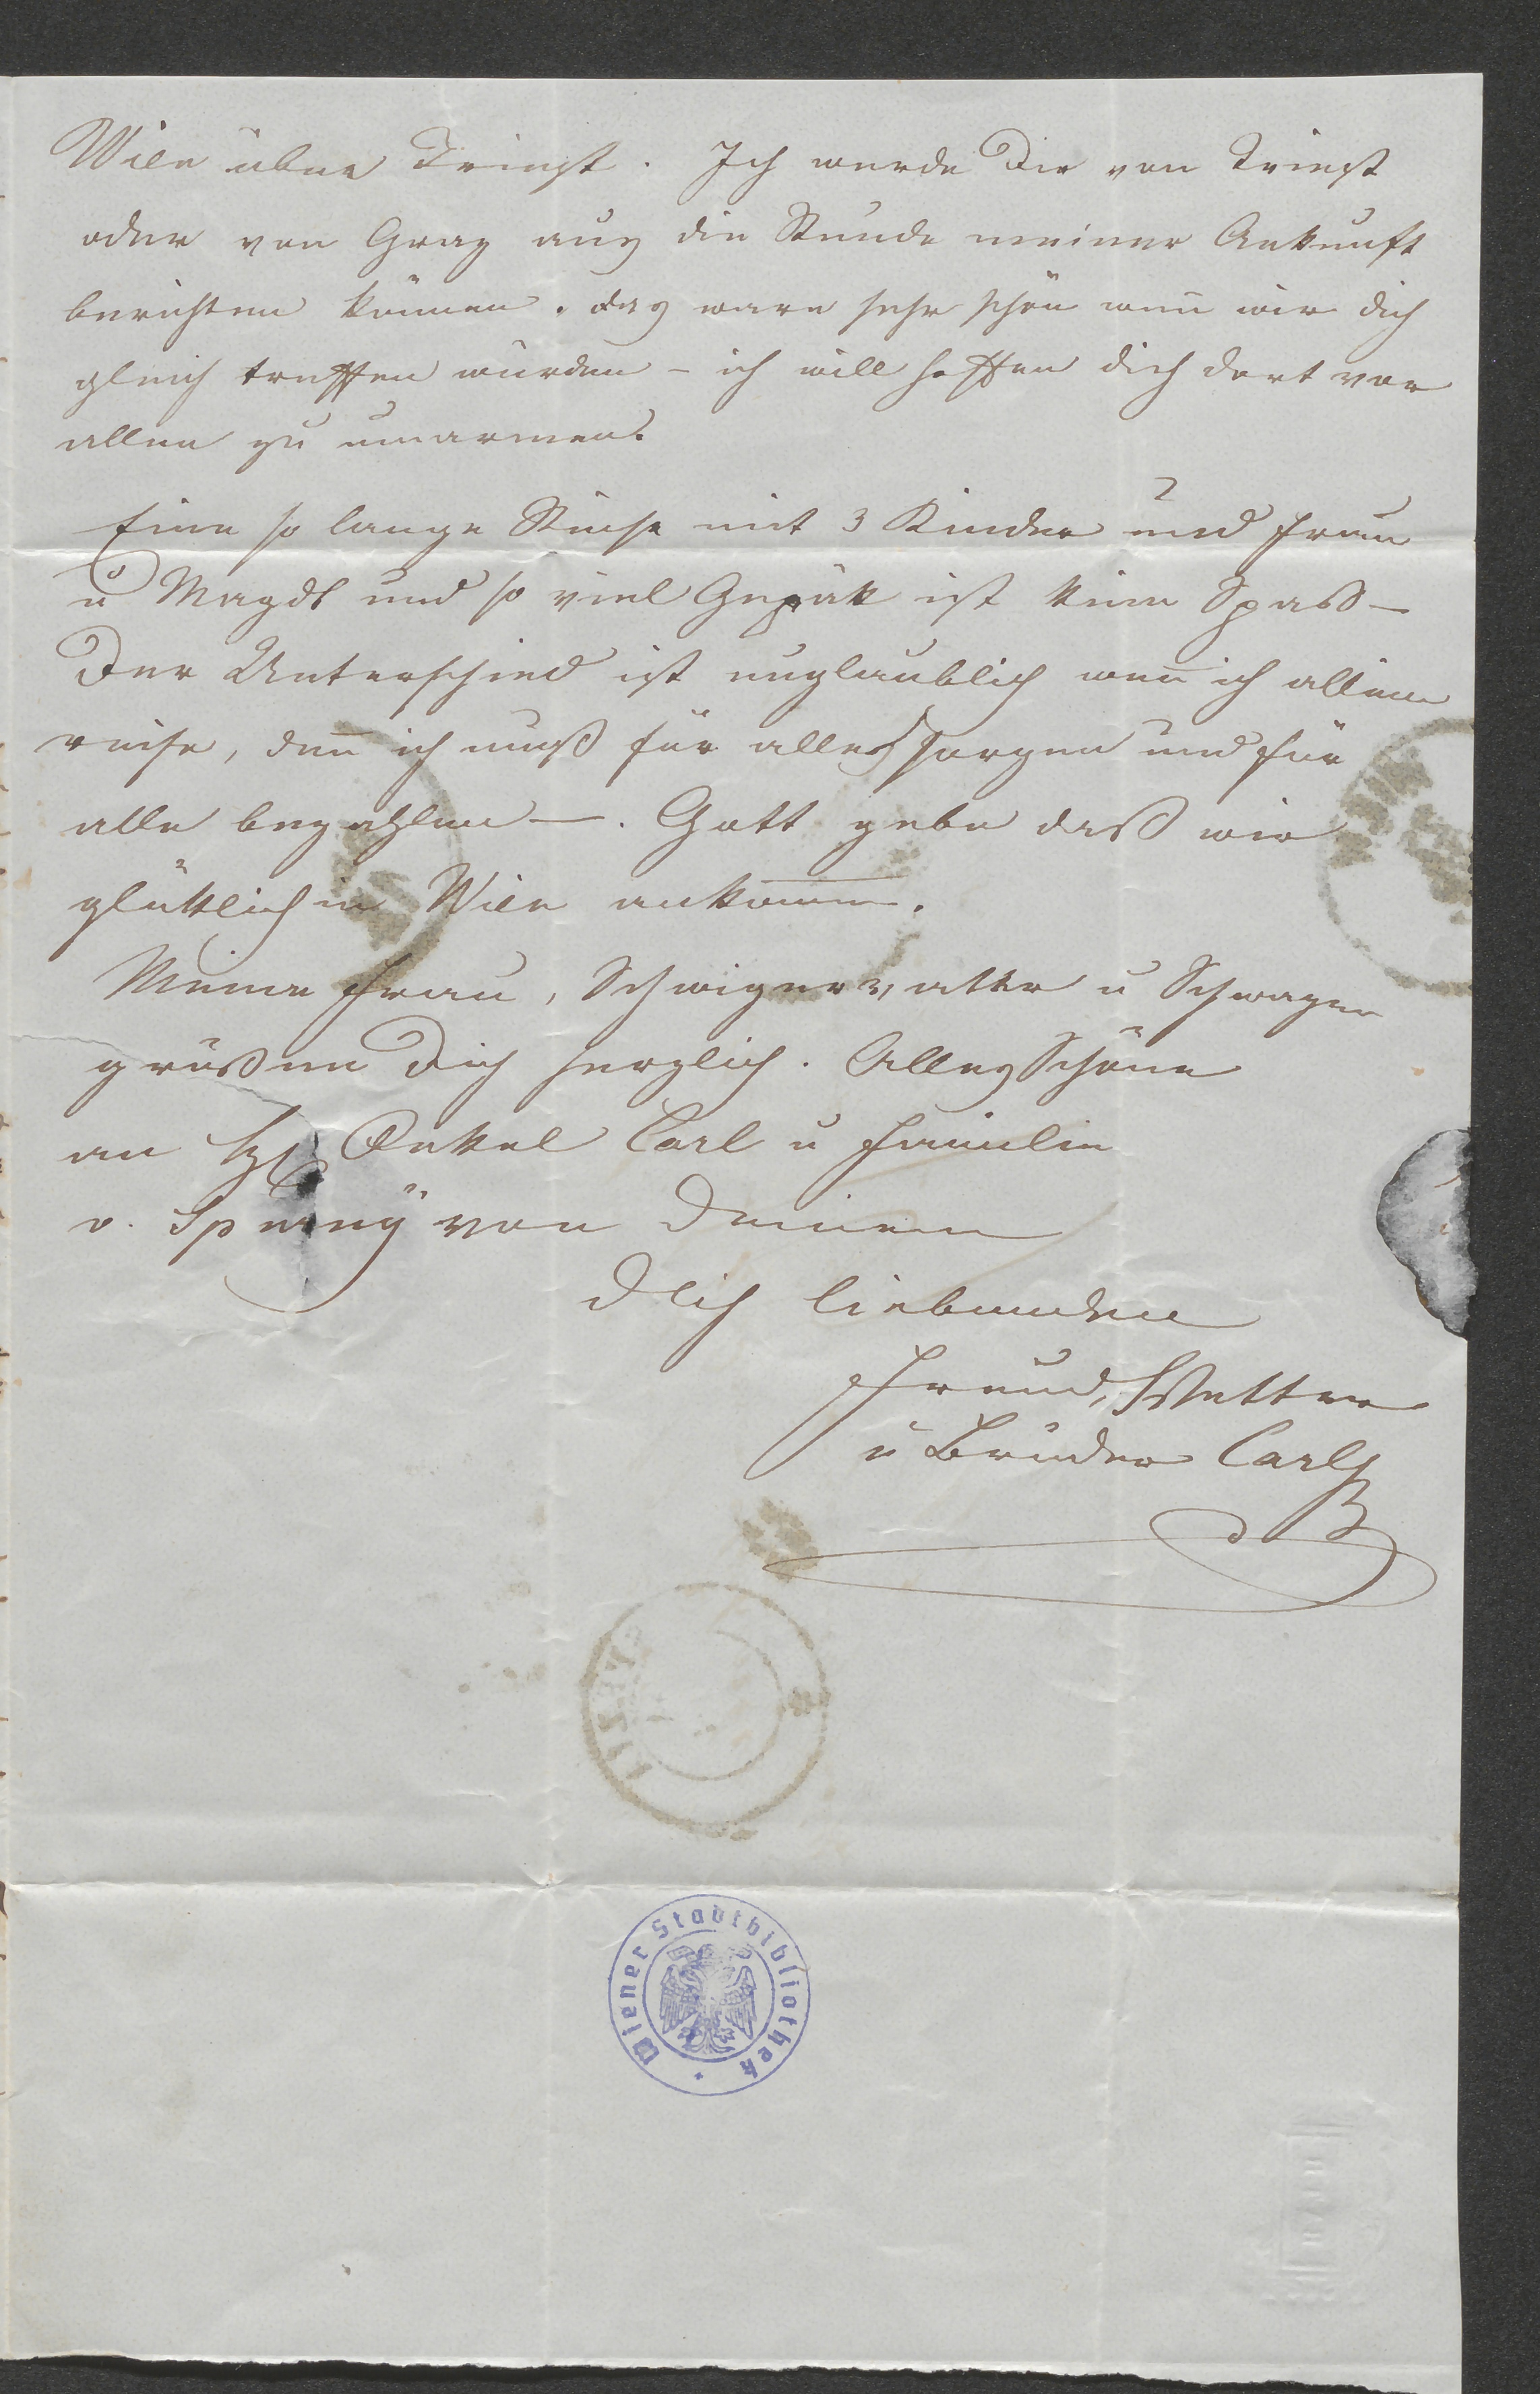 Wien über Triest. Ich werde Dir von Triest
oder von Graz aus die Stunde meiner Ankunft
berichten können. das ware sehr schön weñ wir dich
gleich treffen würden – ich will hoffen dich dort vor
allen zu umarmen.
Eine so lange Reise mit 3 Kinder und Frau
u Magdt und so viel Gepäk ist kein Spaß –
Der Unterschied ist unglaublich weñ ich allein
reise, deñ ich muß für alles sorgen und für
alle bezahlen –. Gott gebe daß wir
glüklich in Wien ankom̅en.
Meine Frau, Schwigervatter u Schwager
grüßen Dich herzlich. Alles Schöne
an H Onkel Carl u Fräulin
v. von Deinem
Dich liebenden
Freund, Vetter
u Bruder Carl
Wiener Stadtbibliothek